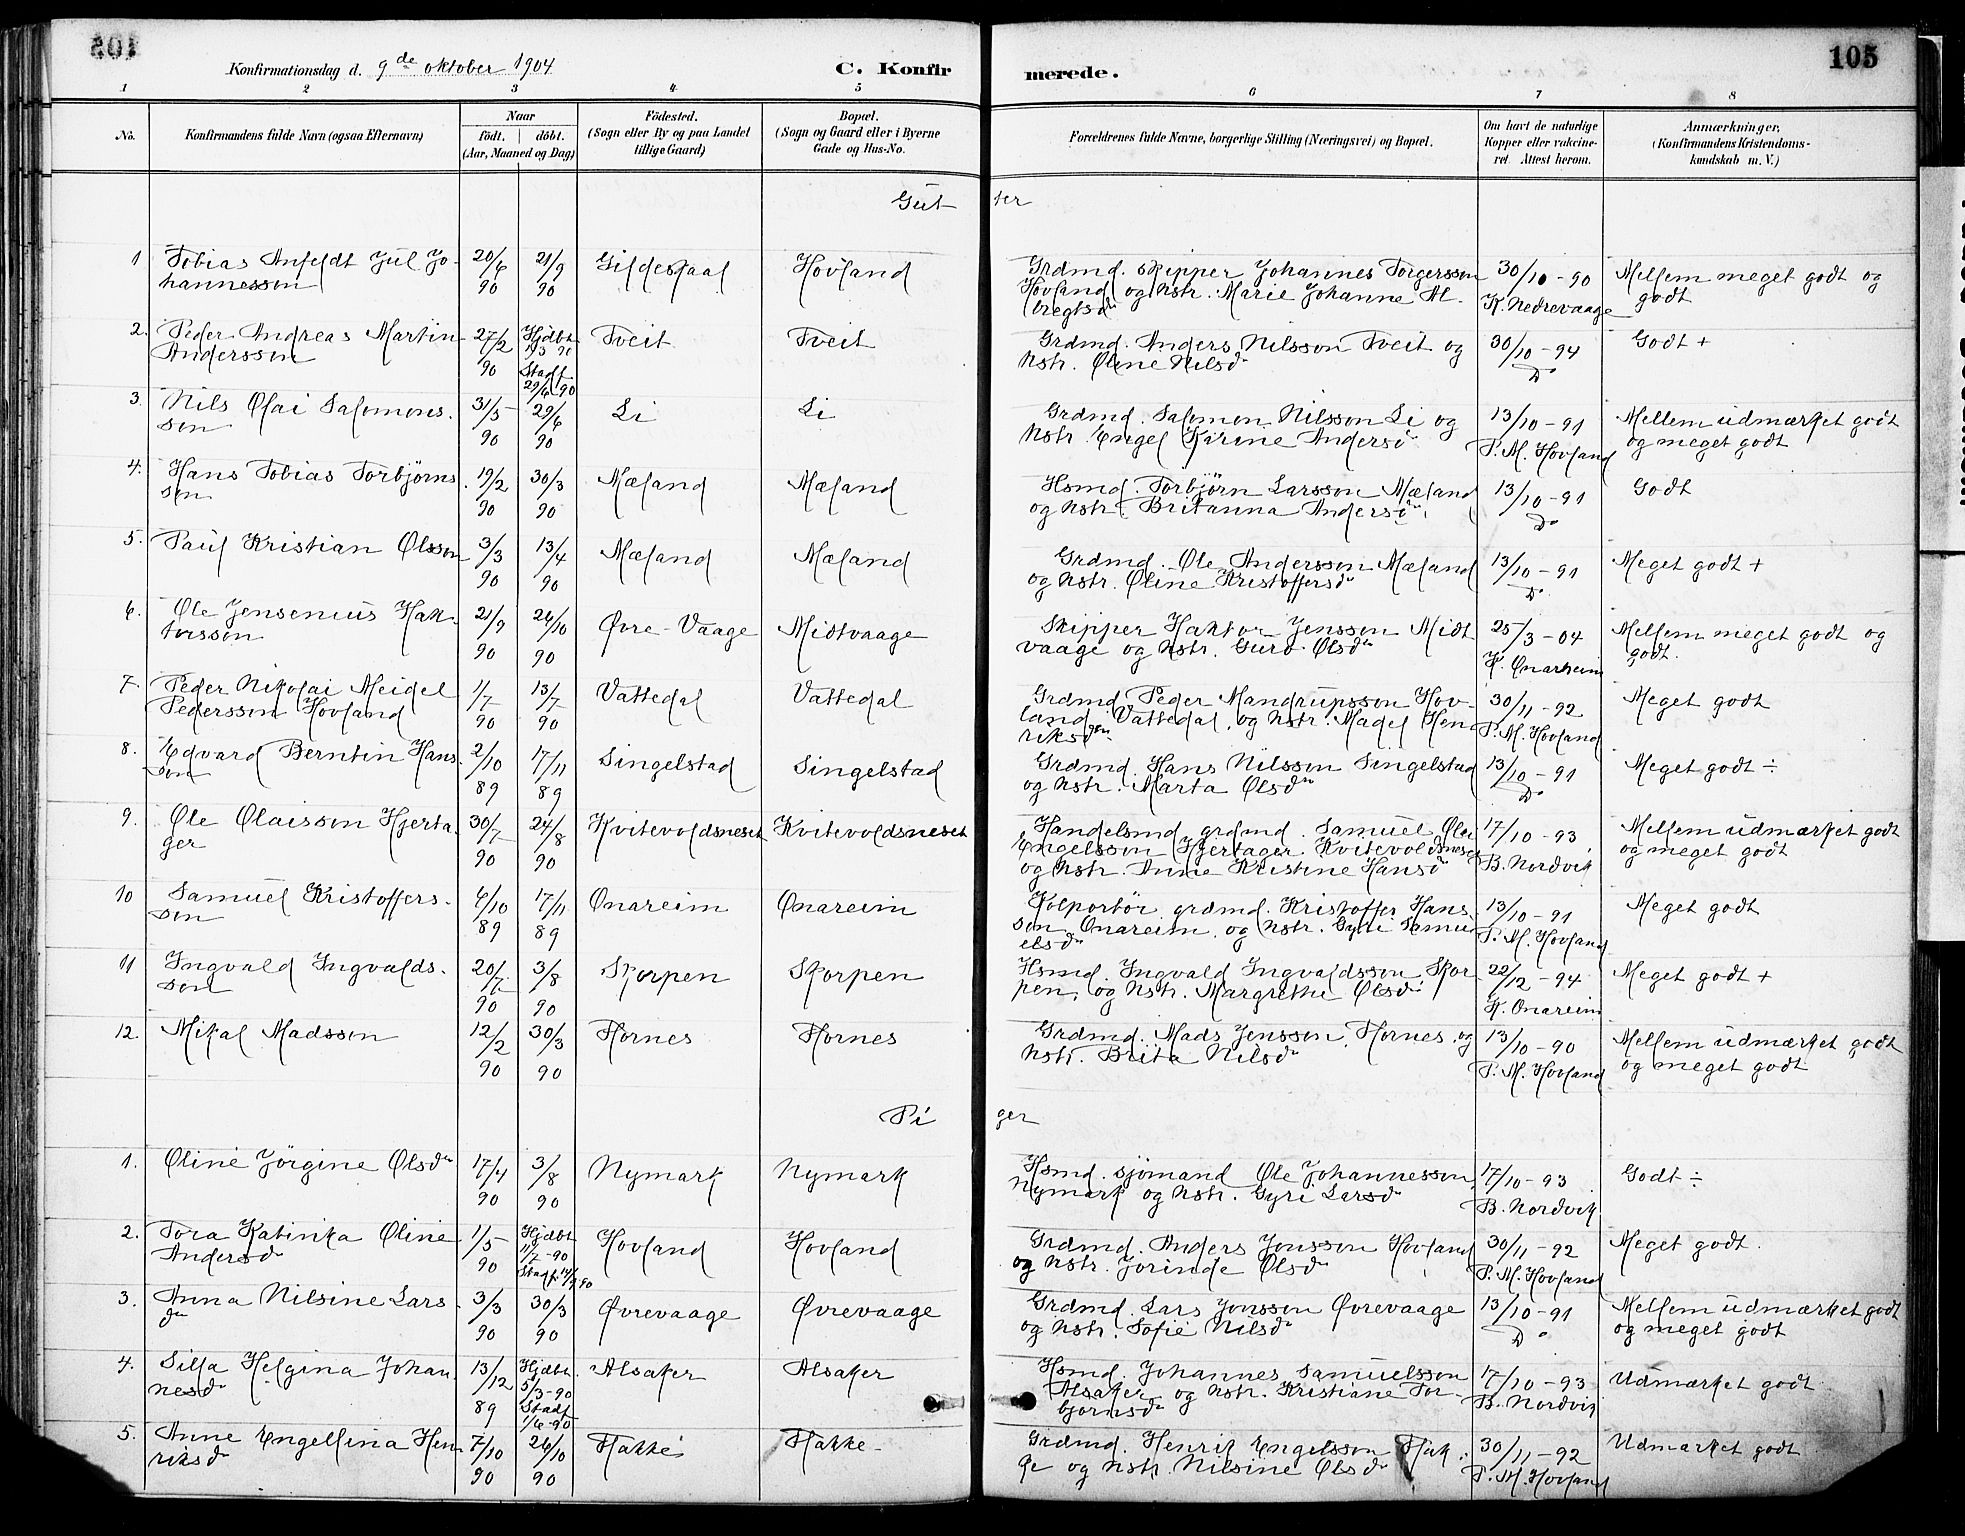 105
Konfirmationsdag d. 9de oktober 1904
C. Konfirmerede.
1 2 3 4 5 6 7 8
No.
Konfirmandens fulde Navn (ogsaa Efternavn)
Naar
födt. döbt.
(Aar, Maaned og Dag)
Födested.
(Sogn eller By og paa Landet
tillige Gaard)
Bopæl.
(Sogn og Gaard eller i Byerne
Gade og Hus-No.
Forældrenes fulde Navne, borgerlige Stilling (Næringsvei) og Bopæl.
Om havt de naturlige
Kopper eller vakcine-
ret. Attest herom.
Anmærkninger,
(Konfirmandens Kristendoms-
kundskab m. V.)
Gutter
1 Tobias Anfeldt Jul Jo-
hannesson
20/6 90
21/9 90
Gildeskaal
Hovland
Grdmd. skipper Johannes Torgersson
Hovland og hstr. Marie Johanne Al-
bregtsdr
30/10-90
K. Nedrevaage
Mellem meget godt og
godt
2. Peder Andreas Martin
Andersson
27/2 90
Hjdbt
1/3 90
Stadf
29/6 90
Tveit
Tveit
Grdmd. Anders Nilsson Tveit og
hstr. Oline Nilsdr
30/10-94
Do
Godt +
3. Nils Olai Salomons-
son
31/5 90
29/6 90
Li
Li
Grdmd. Salomon Nilsson Li og
hstr. Engel Karine Andersdr
13/10-91
P. M. Hovland
Mellem udmærket godt
og meget godt
4. Hans Tobias Torbjörns-
son
19/2 90
30/3 90
Mæland
Mæland
Hsmd. Torbjörn Larsson Mæland
og hstr. Britanna Andersdr
13/10-91
Do
Godt
5. Paul Kristian Olsson
3/3 90
13/4 90
Mæland
Mæland
Grdmd. Ole Andersson Mæland
og hstr. Oline Kristoffersdr
13/10-91
Do
Meget godt +
6. Ole Jensenius Hak-
torsson
21/9 90
26/10 90
Øvre-Vaage
Midtvaage
Skipper Haktor Jensson Midt
vaage og hstr. Guro Olsdr
25/3-04
K. Onarheim
Mellem meget godt og
godt.
7. Peder Nikolai Meidel
Pedersson Hovland
1/7 90
13/7 90
Vattedal
Vattedal
Grdmd. Peder Mandrupsson Hov-
land, Vattedal, og hstr. Madel Hen
riksdr
30/11-92
P. M. Hovland
Meget godt
8. Edvard Berntin Hans-
son
2/10 89
17/11 89
Singelstad
Singelstad
Grdmd. Hans Nilsson Singelstad
og hstr. Marta Olsdr
13/10-91
Do
Meget godt ÷
9. Ole Olaisson Hjerta-
ger
30/7 90
24/8 90
Kvitevoldsneset
Kvitevoldsneset
Handelsmd. grdmd. Samuel Olai
Engelsson Hjertager Kvitevoldsneset
og hstr. Anne Kristine Hansdr
17/10-93
B. Nordvik
Mellem udmærket godt
og meget godt
10 Samuel Kristoffers-
son
6/10 89
17/11 89
Onareim
Onareim
Kolportör, grdmd. Kristoffer Hans-
son Onareim, og hstr. Gyri Samu-
elsdr
13/10-91
P. M. Hovland
Meget godt
11 Ingvald Ingvalds-
son
20/7 90
3/8 90
Skorpen
Skorpen
Hsmd. Ingvald Ingvaldsson Skor
pen, og hstr. Margrethe Olsdr
22/12-94
K. Onareim
Meget godt +
12. Mikal Madsson
12/2 90
30/3 90
Hornes
Hornes
Grdmd. Mads Jensson, Hornes, og
hstr. Brita Nilsdr
13/10-90
P. M. Hovland
Mellem udmærket godt
og meget godt
Piger
1. Oline Jörgine Olsdr
17/4 90
3/8 90
Nymark
Nymark
Hsmd. sjömand Ole Johannesson
Nymark og hstr. Gyri Larsdr
17/10-93
B. Nordvik
Godt ÷
2. Tora Katinka Oline
Andersdr
1/5 90
Hjdbt
11/7-90
Hovland
Hovland
Grdmd. Anders Jonsson Hovland
og hstr. Jorinde Olsdr
30/11-92
P. M. Hovland
Meget godt.
3. Anna Nilsine Lars
dr
3/3 90
30/3 90
Øvrevaage
Øvrevaage
Grdmd. Lars Jonsson Øvrevaage
og hstr. Sofie Nilsdr
13/10-91
Do
Mellem udmærket godt
og meget godt
4. Silla Helgina Johan
nesdr
13/12 89
Hjdbt.
5/3-90
Stadf
1/6-90
Alsaker
Alsaker
Hsmd. Johannes Samuelsson
Alsaker og hstr. Kristiane Tor-
bjornsdr
17/10-93
B. Nordvik
Udmærket godt
5. Anne Engellina Hen
riksdr
7/10 90
26/10 90
Hakke
Hakke
Grdmd. Henrik Engelsson Hak-
ke og hstr. Nilsine Olsdr
30/11-92
P. M. Hovland
Udmærket godt